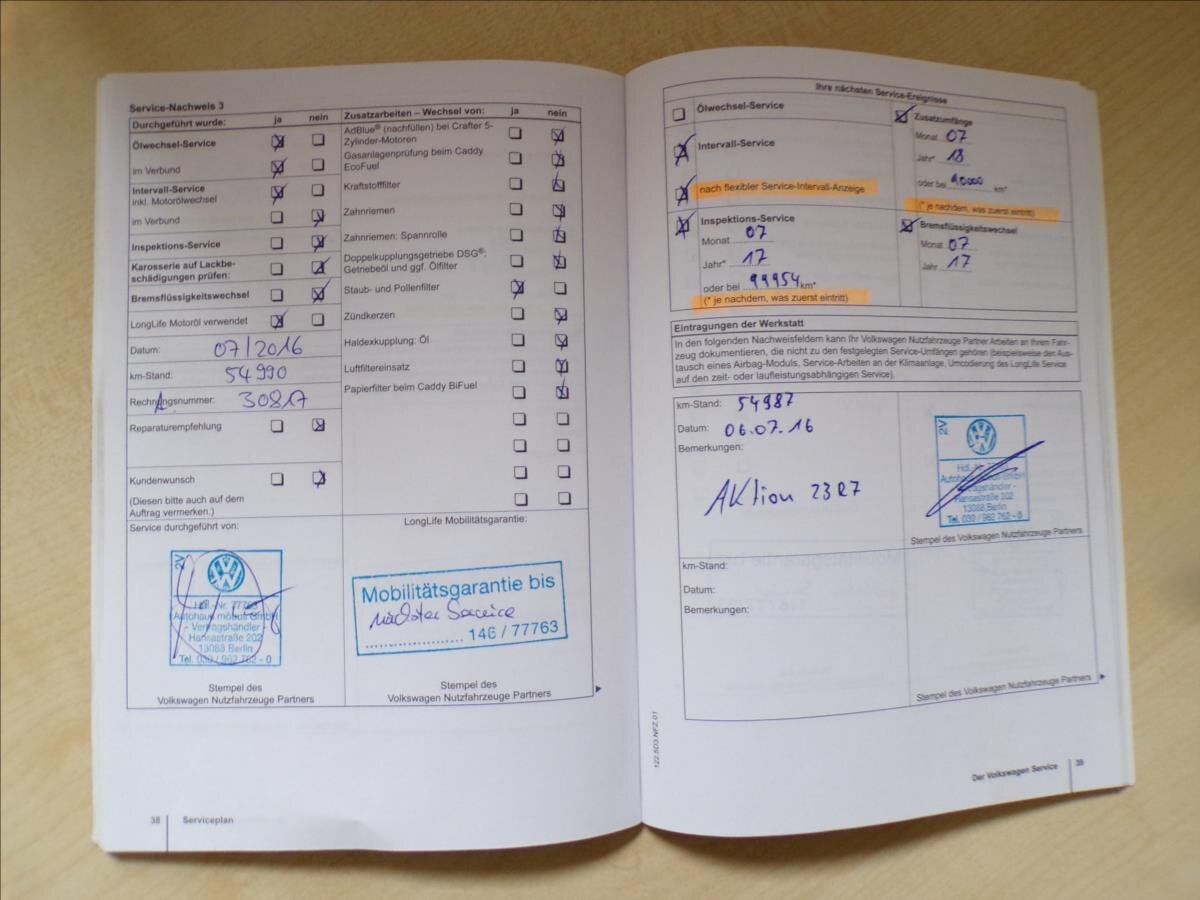 Service-Nachweis 3
Durchgeführt wurde: ja nein
Ölwechsel-Service
im Verbund
Intervall-Service
inkl. Motorölwechsel
im Verbund
Inspektions-Service
Karosserie auf Lackbe-
schädigungen prüfen:
Bremsflüssigkeitswechsel
LongLife Motoröl verwendet
Datum: 07/2016
km-Stand: 54990
Rechnungsnummer: 30817
Reparaturempfehlung
Kundenwunsch
(Diesen bitte auch auf dem
Auftrag vermerken.)
Service durchgeführt von:
2V
Hdl.-Nr. 77763
Autohaus möbus GmbH
- Vertragshändler -
Hansastraße 202
13088 Berlin
Tel. 030 / 962 762 - 0
Stempel des
Volkswagen Nutzfahrzeuge Partners
Zusatzarbeiten – Wechsel von: ja nein
AdBlue® (nachfüllen) bei Crafter 5-
Zylinder-Motoren
Gasanlagenprüfung beim Caddy
EcoFuel
Kraftstofffilter
Zahnriemen
Zahnriemen: Spannrolle
Doppelkupplungsgetriebe DSG®:
Getriebeöl und ggf. Ölfilter
Staub- und Pollenfilter
Zündkerzen
Haldexkupplung: Öl
Luftfiltereinsatz
Papierfilter beim Caddy BiFuel
LongLife Mobilitätsgarantie:
Mobilitätsgarantie bis
nächster Service
146 / 77763
Stempel des
Volkswagen Nutzfahrzeuge Partners
38 Serviceplan
Ihre nächsten Service-Ereignisse
Ölwechsel-Service
Intervall-Service
nach flexibler Service-Intervall-Anzeige
Inspektions-Service
Monat 07
Jahr* 17
oder bei 99954 km*
(* je nachdem, was zuerst eintritt)
Zusatzumfänge
Monat 07
Jahr* 18
oder bei 90000 km*
(* je nachdem, was zuerst eintritt)
Bremsflüssigkeitswechsel
Monat 07
Jahr 17
Eintragungen der Werkstatt
In den folgenden Nachweisfeldern kann Ihr Volkswagen Nutzfahrzeuge Partner Arbeiten an Ihrem Fahr-
zeug dokumentieren, die nicht zu den festgelegten Service-Umfängen gehören (beispielsweise den Aus-
tausch eines Airbag-Moduls, Service-Arbeiten an der Klimaanlage, Umcodierung des LongLife Service
auf den zeit- oder laufleistungsabhängigen Service).
km-Stand: 54987
Datum: 06.07.16
Bemerkungen:
Aktion 23R7
2V
Hdl.-Nr. 77763
Autohaus möbus GmbH
- Vertragshändler -
Hansastraße 202
13088 Berlin
Tel. 030 / 962 762 - 0
Stempel des Volkswagen Nutzfahrzeuge Partners
km-Stand:
Datum:
Bemerkungen:
Stempel des Volkswagen Nutzfahrzeuge Partners
122.5D3.NFZ.01
Der Volkswagen Service 39